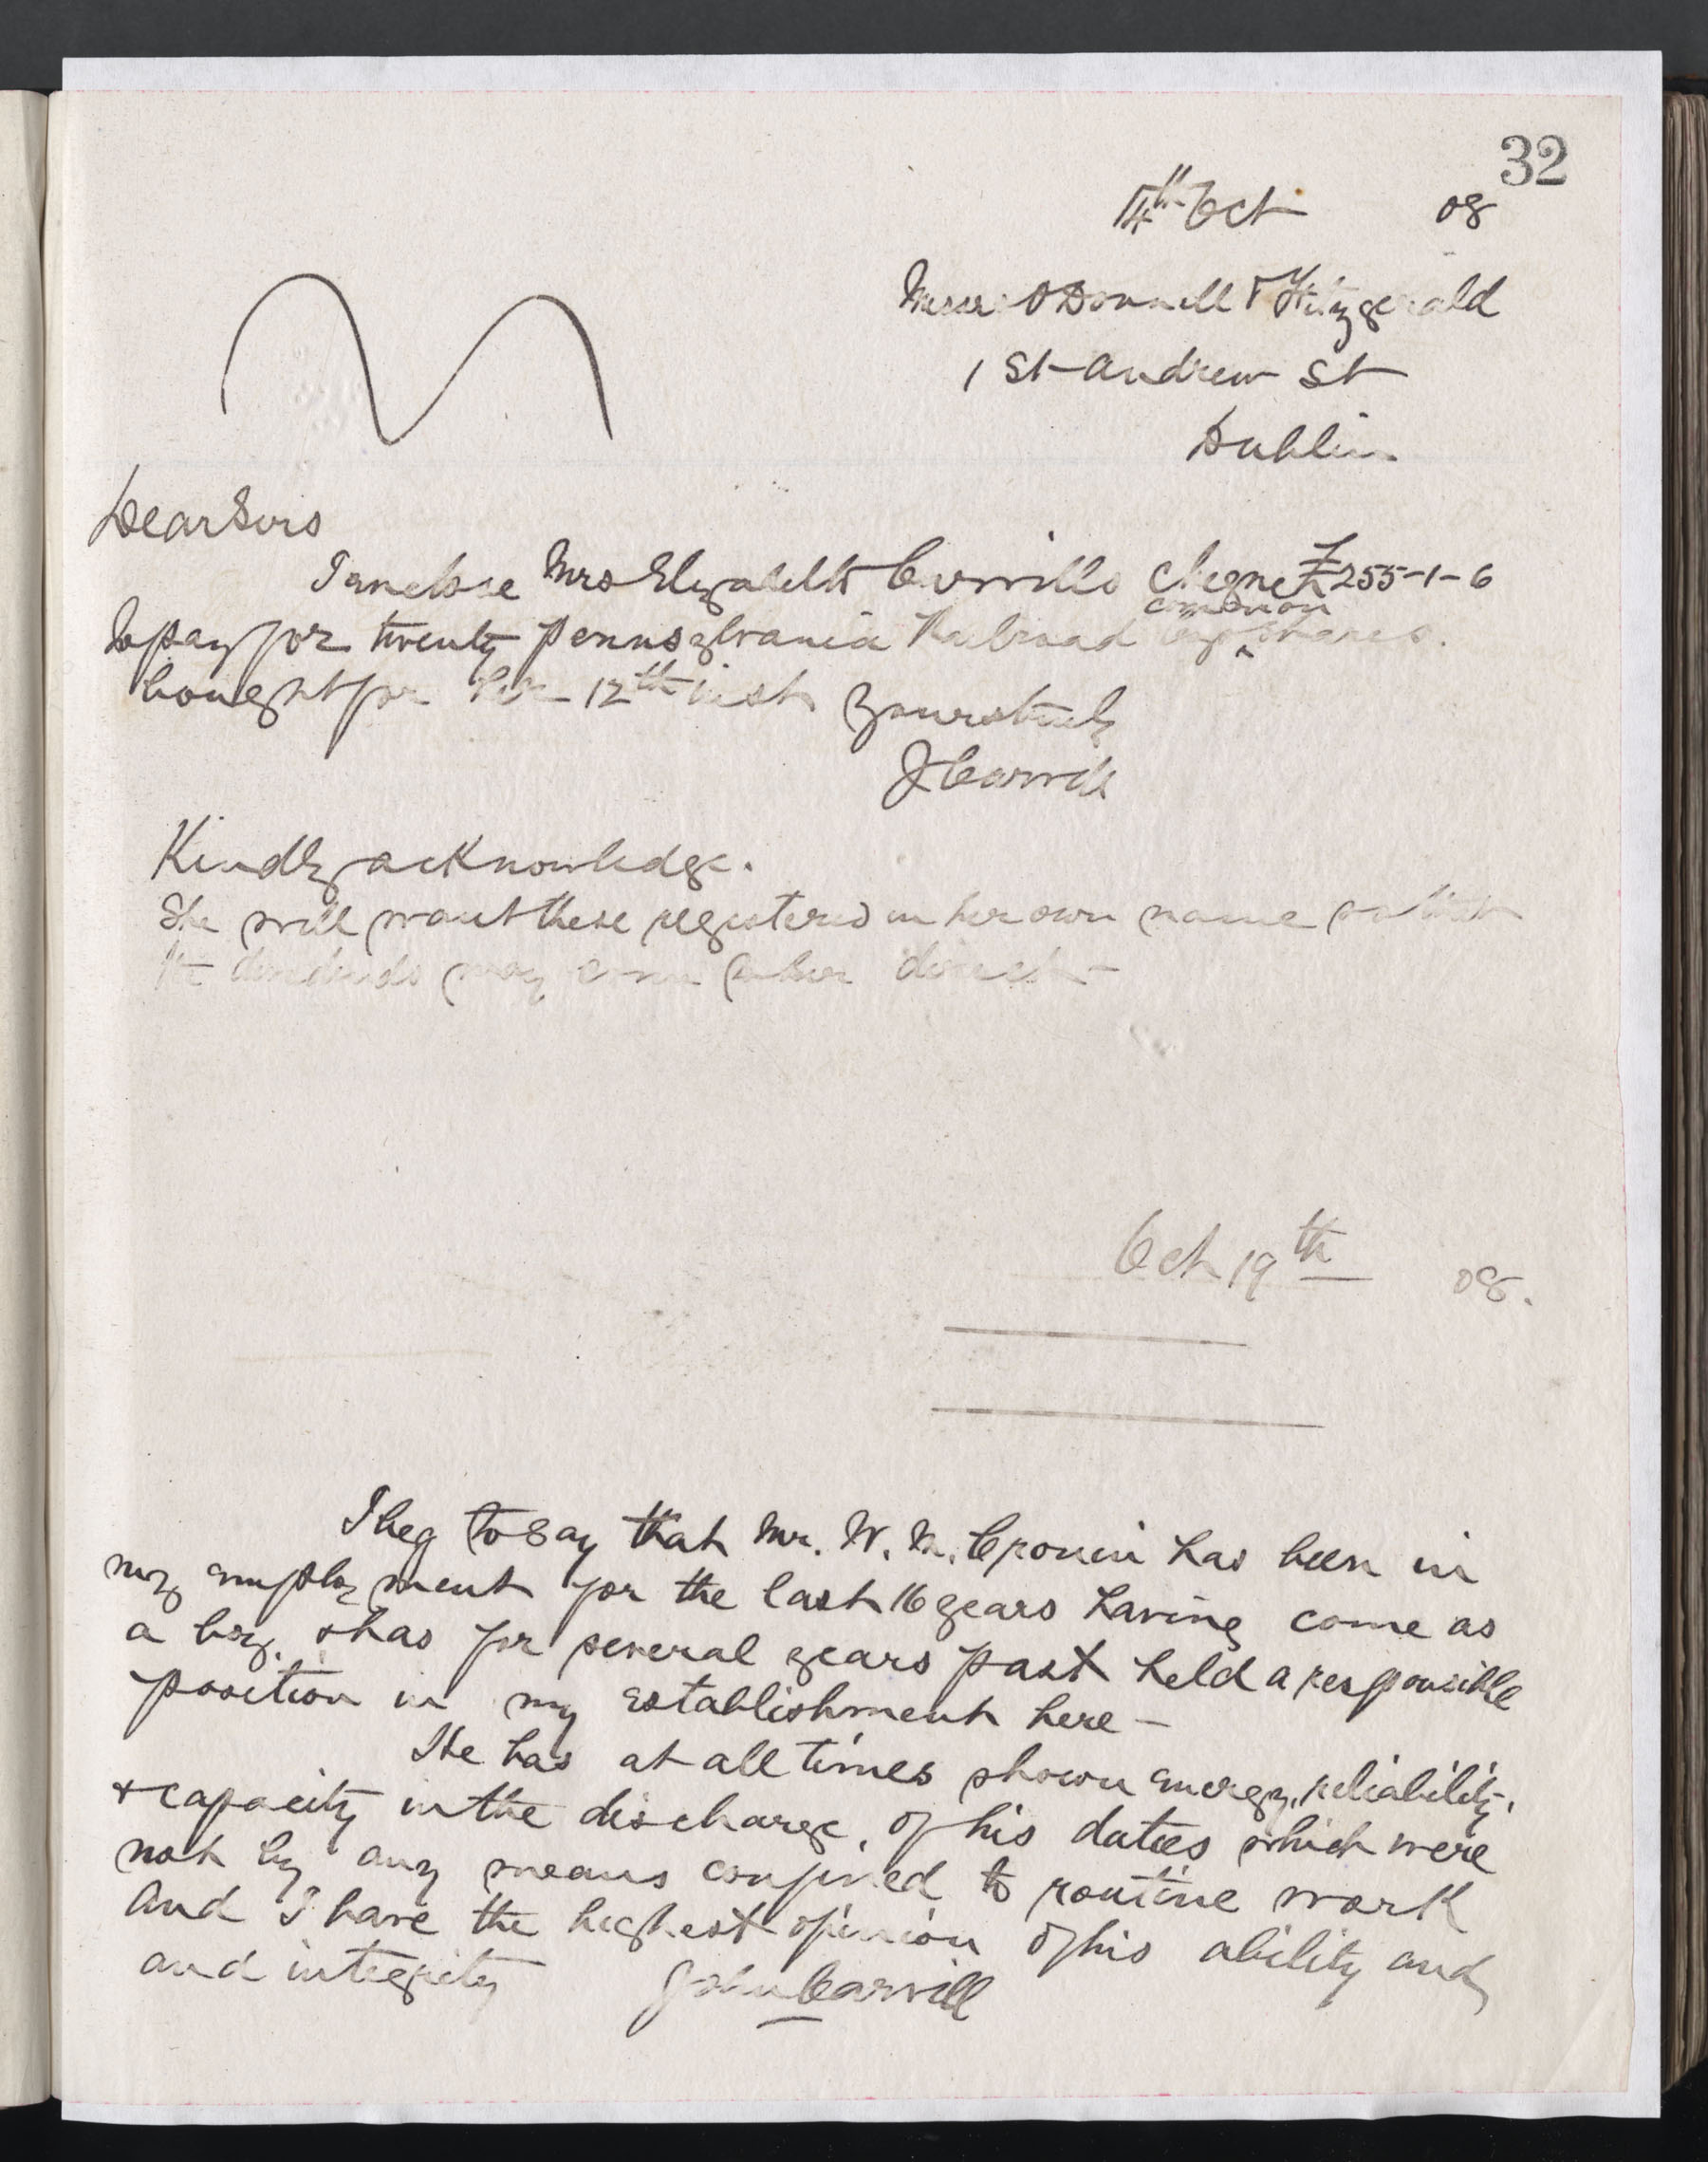 32
14th Oct 08
Messrs O Donnell & Fitzgerald
1 St Andrew St
Dublin
Dear Sirs
I enclose Mrs Elizabeth Carvills cheque £255-1-6
to pay for twenty Pennsylvania Railroad
common
shares.
bought for her 12th inst Yours truly
J Carvill
Kindly acknowledge.
She will want these registered in her own name so that
the dividends may come to her direct
Oct 19th 08.
I beg to say that Mr. W. M. Cronin has been in
my employment for the last 16 years having come as
a boy, & has for several years past held a responsible
position in my establishment here -
He has at all times shown energy, reliability,
& capacity in the discharge, of his duties which were
not by any means confined to routine work
And I have the highest opinion of his ability and
and integrity John Carvill